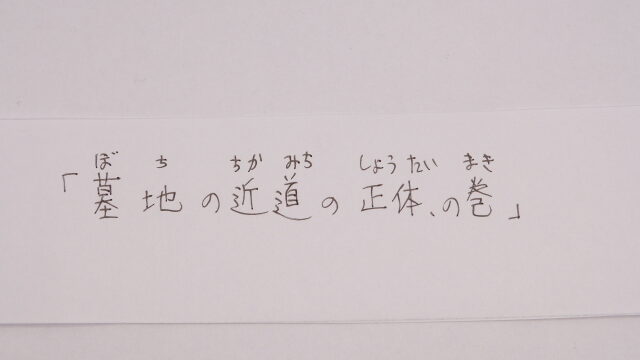 ぼ ち ちか みち しょう たい まき
「墓地の近道の正体、の巻」